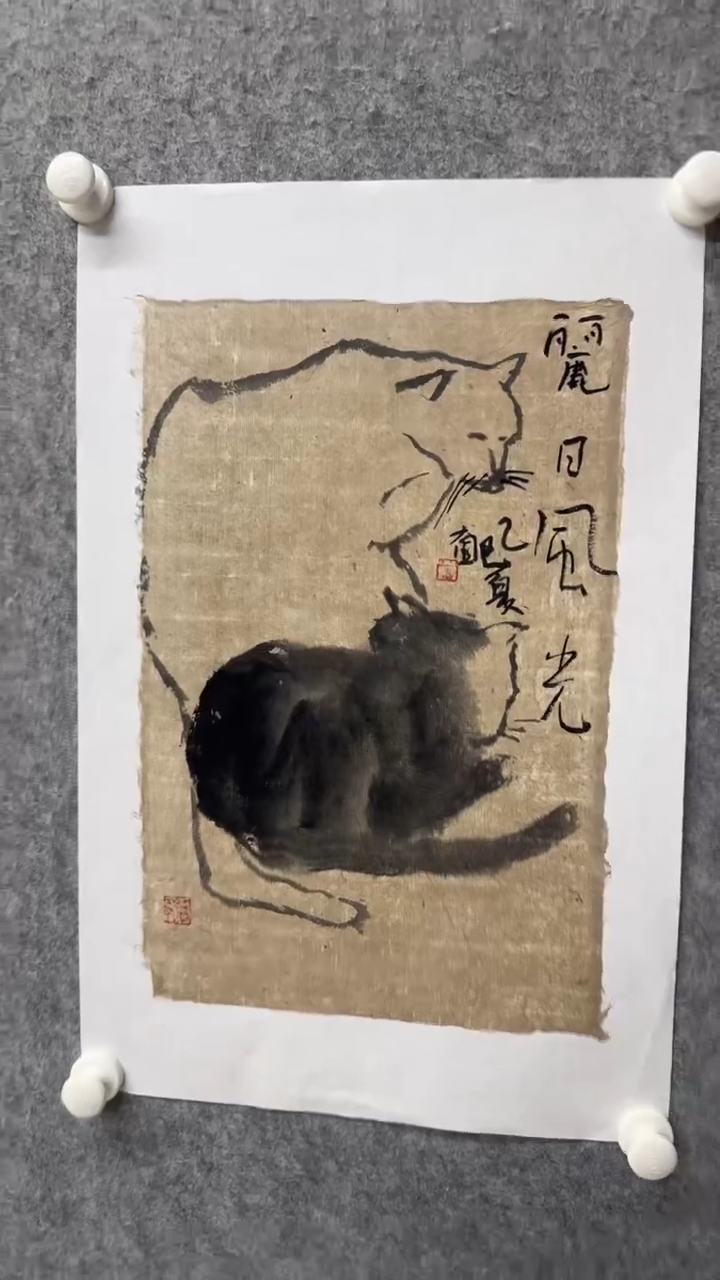 麗日風光
乙巳夏